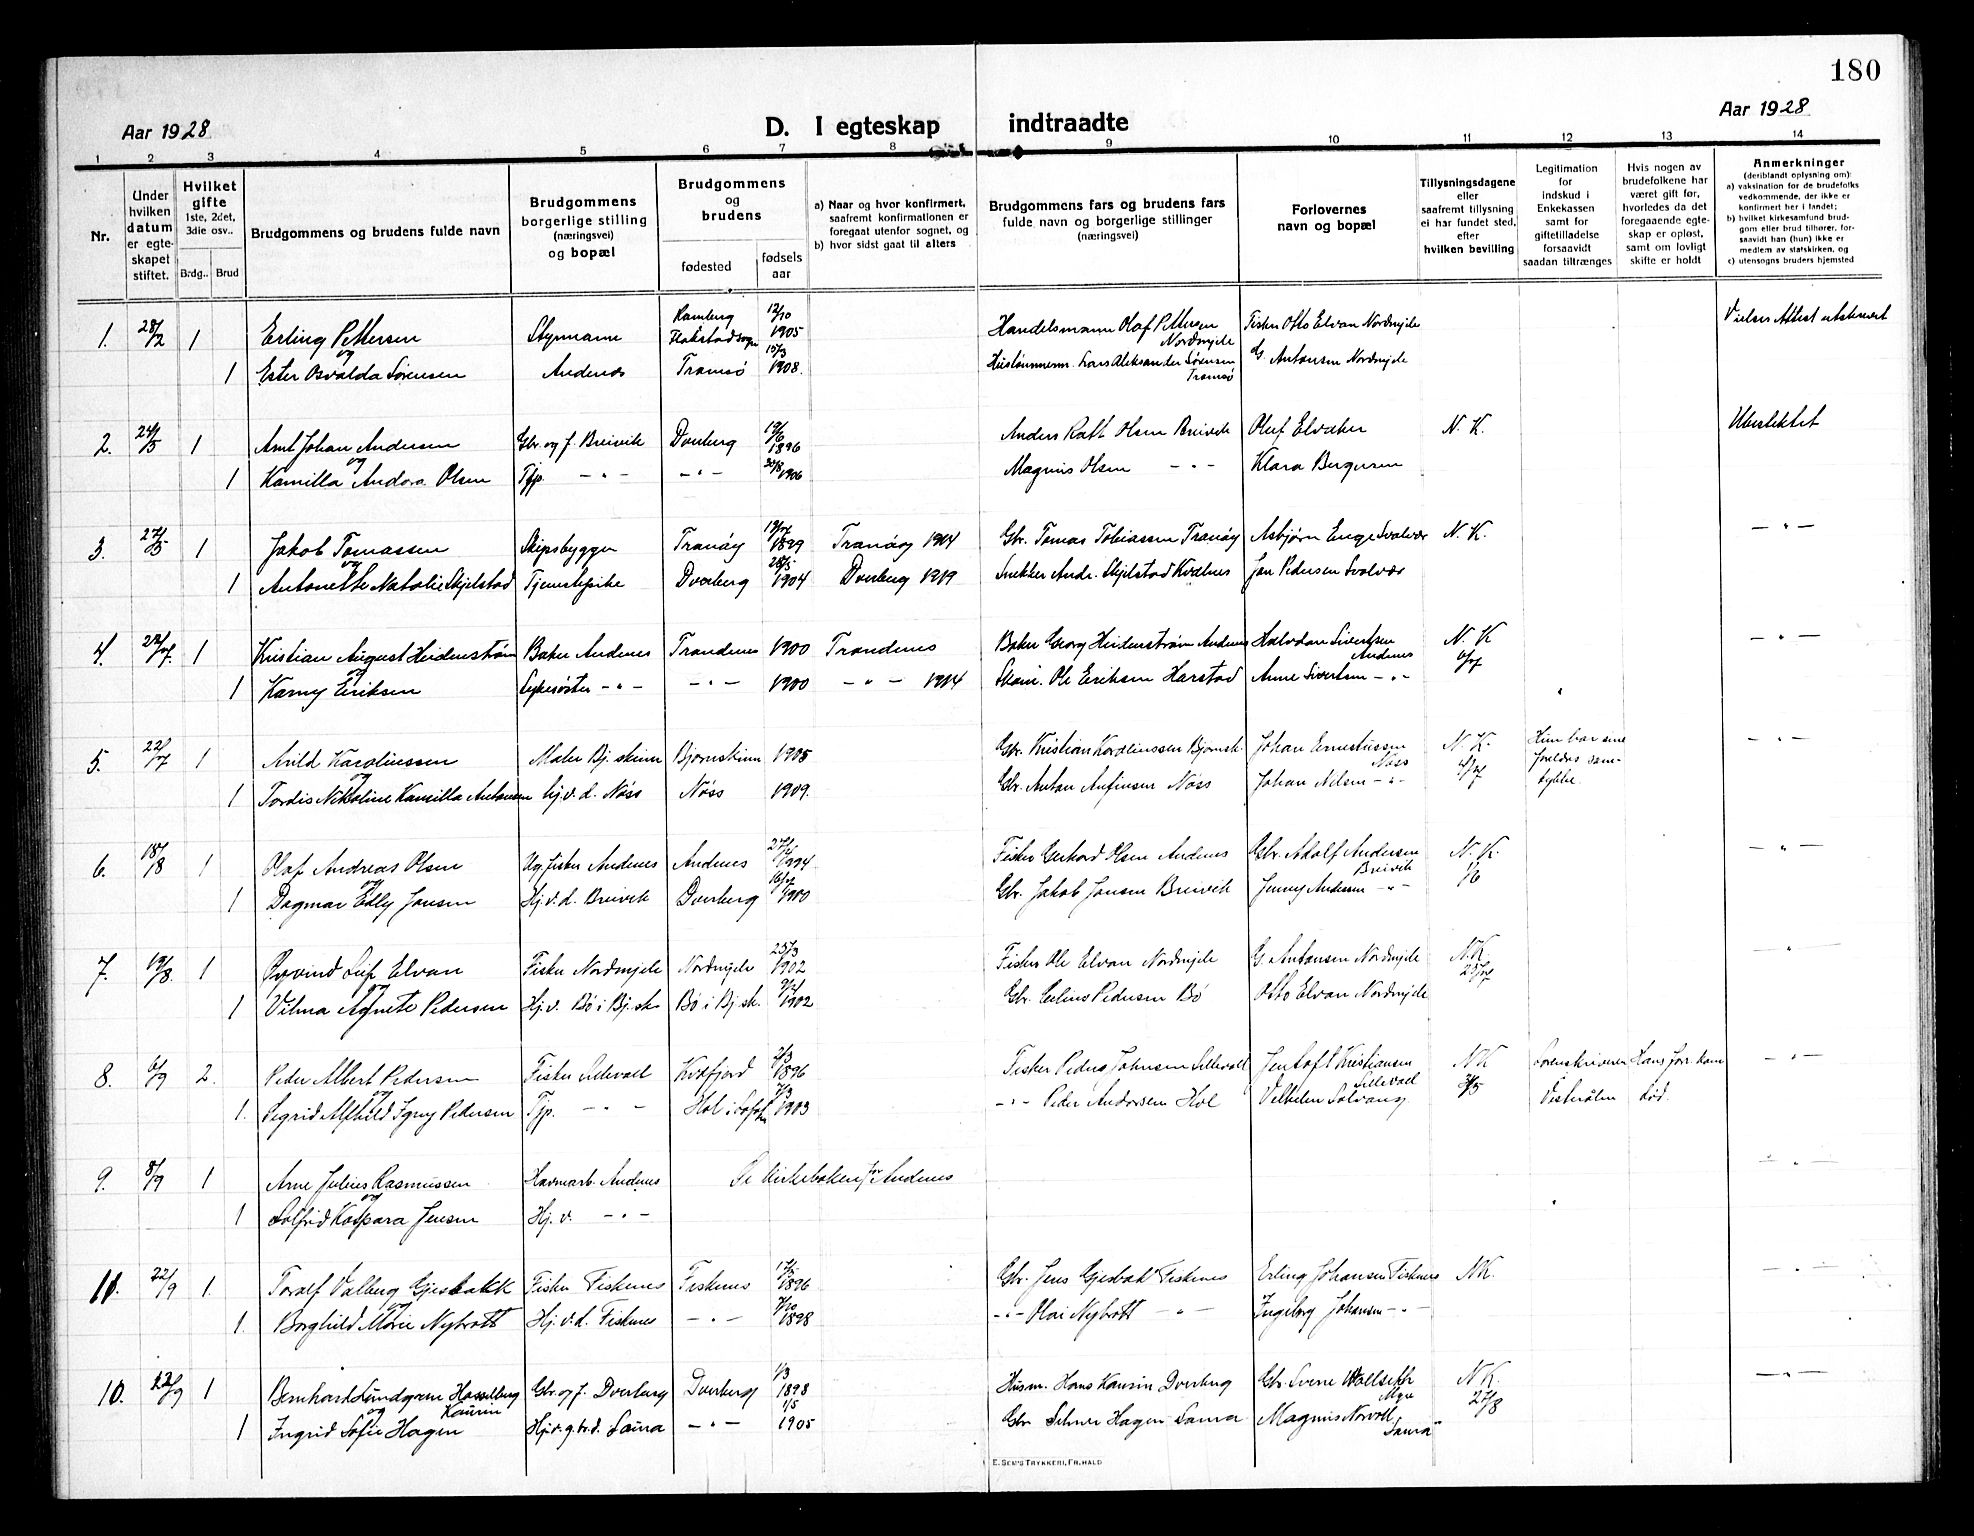 180
Aar 1928
D. I egteskap indtraadte
Aar 1928
1 2 3 4 5 6 7 8 9 10 11 12 13 14
Nr.
Under hvilken datum er egteskapet stiftet.
Hvilket gifte 1ste, 2det, 3die osv..
Brdg.. Brud
Brudgommens og brudens fulde navn
Brudgommens borgerlige stilling (næringsvei) og bopæl
Brudgommens og brudens
fødested
fødsels aar
a) Naar og hvor konfirmert, saafremt konfirmationen er foregaat utenfor sognet, og
b) hvor sidst gaat til alters
Brudgommens fars og brudens fars fulde navn og borgerlige stillinger (næringsvei)
Forlovernes navn og bopæl
Tillysningsdagene eller saafremt tillysning ei har fundet sted, efter hvilken bevilling
Legitimation for indskud i Enkekassen samt for giftetilladelse forsaavidt saadan tiltrænges
Hvis nogen av brudefolkene har været gift før, hvorledes da det foregaaende egteskap er opløst, samt om lovligt skifte er holdt
Anmerkninger
(deriblandt oplysning om):
a) vaksination for de brudefolks vedkommende, der ikke er konfirmert her i landet;
b) hvilket kirkesamfund brudgom eller brud tilhører, forsaavidt han (hun) ikke er medlem av statskirken, og
c) utensogns bruders hjemsted
1. 28/2 1 Erling Pettersen Styrmann Ramberg Flakstad sogn 12/10 1905 Handelsmann Olaf Pettersen Nordmjele Fisker Otto Elvan Nordmjele Vielses Attest utskrevet
og
1 Ester Osvalda Sørensen Andenes Tromsø 15/3 1908. Lars Aleksander Sørensen Tromsø G. Antonsen Nordmjele
2. 24/5 1 Arnt Johan Andersen Gbr. og f. Breivik Dverberg 19/6 1896 Anders Olsen Breivik Oluf Elvaker N. K. Utvistiktet
og
1 Kamilla Andora Olsen Tjp. -"- -"- 1906 Magnus Olsen -"- Klara Bergersen
3. 27/5 1 Jakob Tomassen Skipsbygger Tranøy 1899 Tranøy 1914 Gbr. Tomas Tobiassen Tranøy Asbjørn Enge Svolvær N. K. -"-
og
1 Antonette Natalie Skjelstad Tjenestepike Dverberg 28/5 1904 Dverberg 1919 Snekker Andr. Skjelstad Kvalnes Jan Pedersen Svolvær
4. 22/7. 1 Kristian August Heidenstrøm Baker Andenes Trondenes 1900 Trondenes Baker Georg Heidenstrøm Andenes Halvdan Sivertsen Andenes N. K -"-
og
1 Karny Eriksen Sykesøster -"- -"- 1900 -"- 1914 Ole Eriksen Harstad Anne Sivertsen -"- 6/7
5. 22/7 1 Arild Karolinssen Maler Bj. skinn Bjørnskinn 1905 Gbr. Kristian Karolinssen Bjørnsk. Johan Ernestussen Nøss N. K. Hun har sine foreldres samtykke -"-
og
1 Tordis Nikoline Kamilla Antonsen hj. v. d. Nøss Nøss 1909. Gbr. Anton Anfinsen Nøss Johan Nilsen -"- 4/7
6. 18/8 1 Olaf Andreas Olsen Ug. fisker Andenes Andenes 1894 Fisker Gerhard Olsen Andenes Gbr. Adolf Andersen Breivik N. K. -"-
og
1 Dagmar Edly Jansen Hj. v. d. Breivik Dverberg 16/7 1900 Gbr. Jakob Jansen Breivik Jenny Andersen -"-
7. 19/8. 1 Øyvind Leif Elvan Fisker Nordmjele Nordmjele 25/3 1902 Fisker Ole Elvan Nordmjele G. Antonsen Nordmjele N.K. -"-
og
1 Vilma Agnete Pedersen Hj. v. Bø i Bj. sk. Bø i Bj. sk. 1902 Gbr. Pedersen Bø Otto Elvan Nordmjele 25/7
8. 6/9 2. Peder Albert Pedersen Fisker Sellevoll Kvæfjord 2/3 1896 Fisker Peder Johnsen Sellevoll Jentoft Kristiansen Sellevoll NK Sorenskriveren Hans forr. kone -"-
og
1. Sigrid Alfhild Igny Pedersen Tjp. -"- Hol i Lofoten 1903 -"- Peder Andersen Hol Solvang Vesterålen død.
9. 8/9 1 Arne Julius Rasmussen Havnarb. Andenes Se Kirkeboken for Andenes -"-
og
1 Solfrid Kaspara Jensen Hj. v. -"-
10. 22/9 1. Toralf Valberg Gjesbakk Fisker Fiskenes Fiskenes 1896 Gbr. Jens Gjesbak Fiskenes Erling Johansen Fiskenes NK. -"-
og
1. Borghild Marie Nybrott Hj. v. d. Fiskenes -"- 1898 -"- Olai Nybrott -"- Ingeborg Johansen -"-
10. 22/9 1 Bernhard Lundgren Hasselberg Kaurin Gbr. og f. Dverberg Dverberg 1/3 1898 Husm. Hans Kaurin Dverberg Gbr. Sverre Myre NK. -"-
og
1 Ingrid Sofie Hagen Hj. v. g. br. d. Saura -"- 1/5 1905 Gbr. Hagen Saura Magnus Norvoll Saura 27/8
E. SEM'S TRYKKERI, FR.HALD